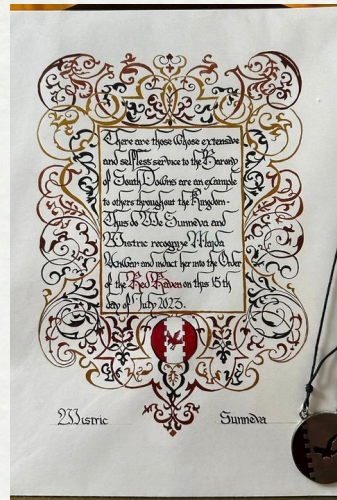 There are those whose extensive
and selfless service to the Barony
of South Downs are an example
to others throughout the Kingdom-
Thus do We Sunneva and
Wistric recognize
and induct her into the Order
of the Red Raven on this 15th
day of July 2023.
Wistric Sunneva